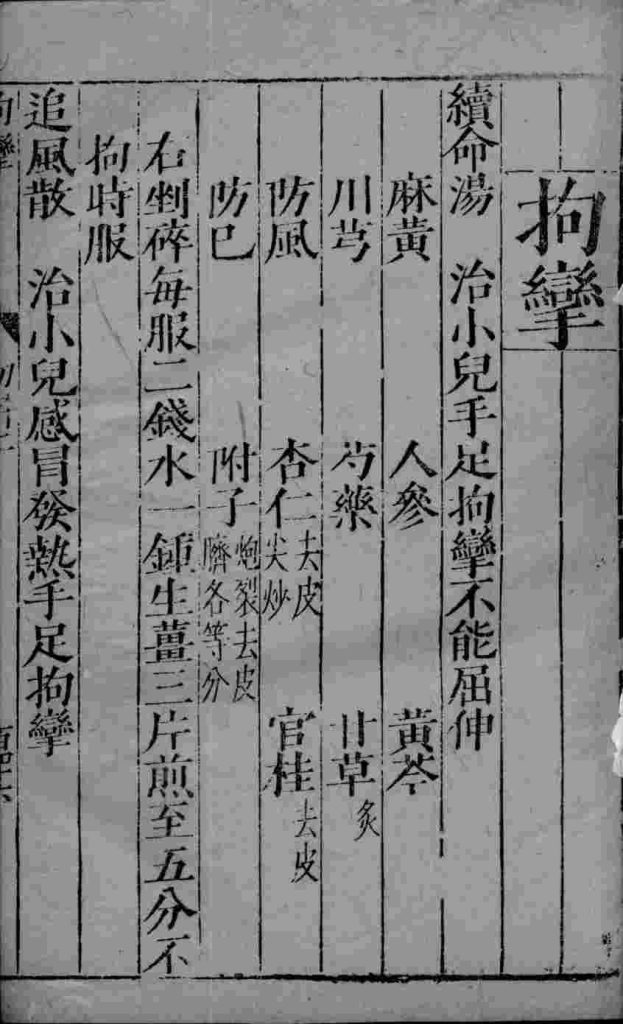 拘攣
續命湯 治小兒手足拘攣不能屈伸
麻黄 人參 黄芩
川芎 芍藥 甘草炙
防風 杏仁去皮尖炒 官桂去皮
防巳 附子炮裂去皮臍各等分
右剉碎每服二錢水一鍾生薑三片煎至五分不
拘時服
追風散 治小兒感冒發熱手足拘攣